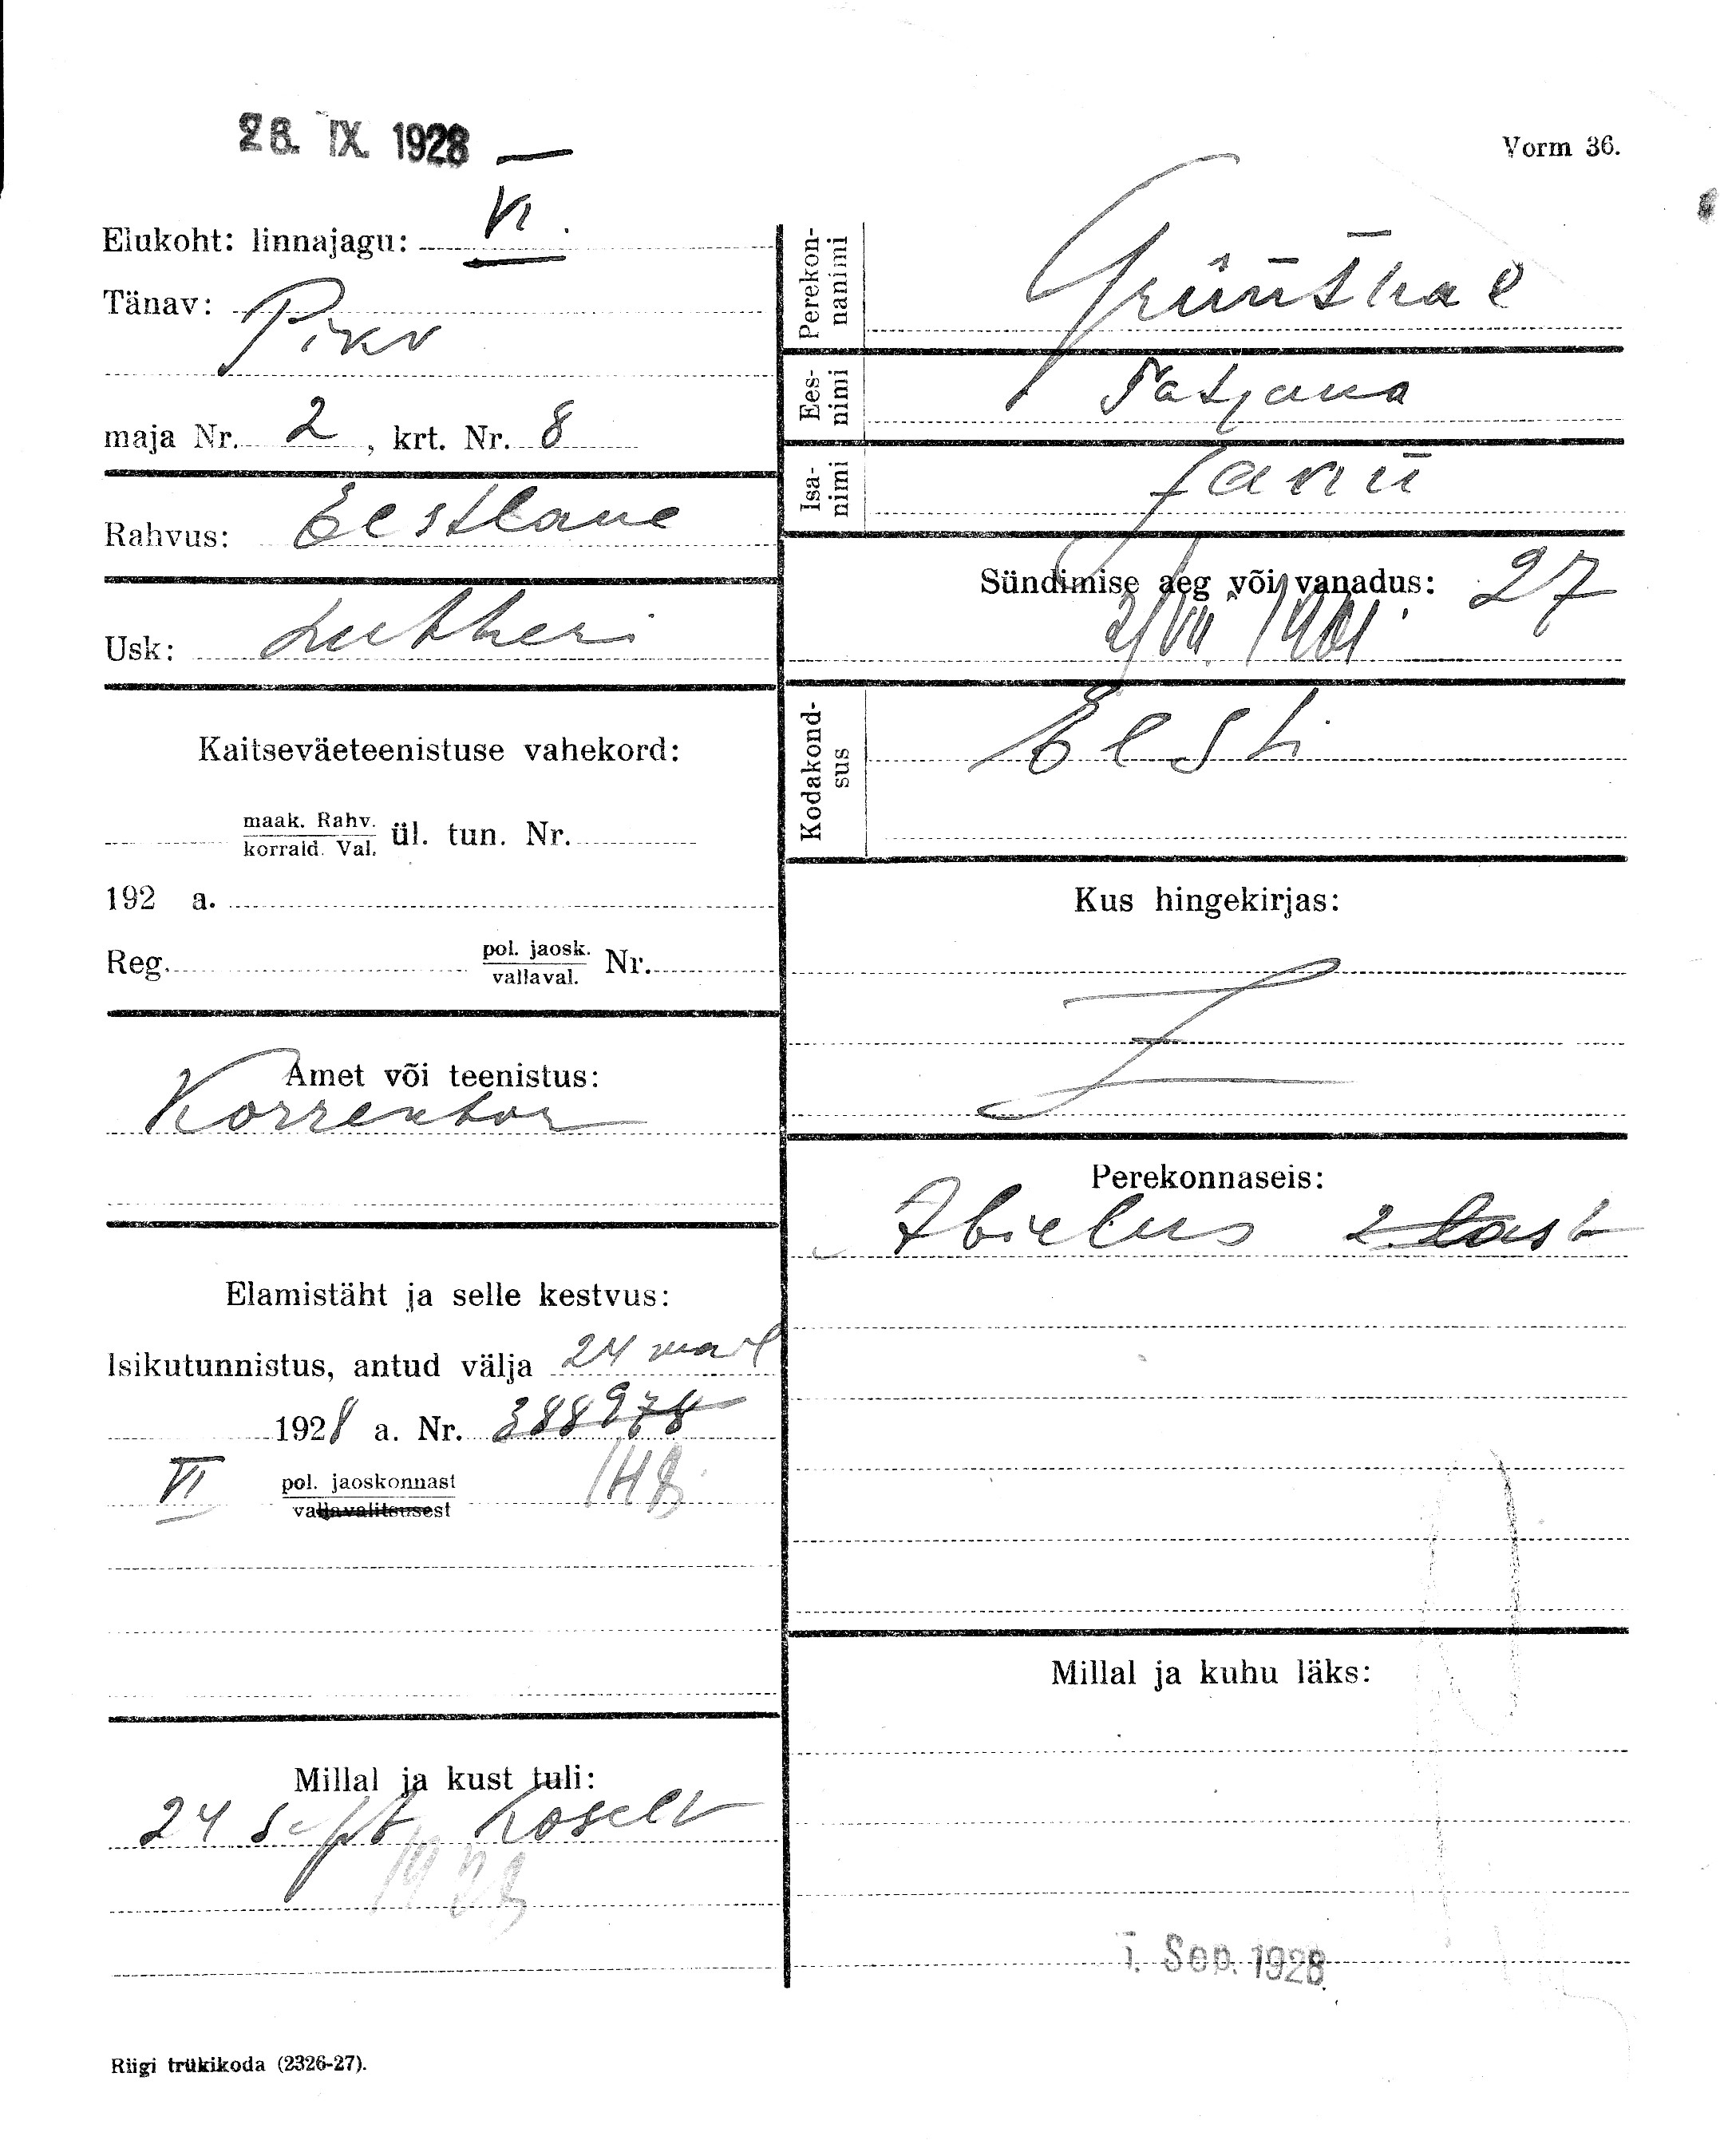 26. IX. 1928
Vorm 36.
Elukoht: linnajagu: VI.
Tänav: Pikv
maja Nr. 2, krt. Nr. 8
Rahvus: Eestlane
Usk: Lutheri
Kaitseväeteenistuse vahekord:
maak. Rahv.
korrald. Val. ül. tun. Nr.
192 a.
Reg. pol. jaosk.
vallaval. Nr.
Amet või teenistus:
Korrektor
Elamistäht ja selle kestvus:
Isikutunnistus, antud välja 24 mail
1928 a. Nr. 388978
VI pol. jaoskonnast
vallavalitsusest
Millal ja kust tuli:
24 Sept Koselt
1928
Perekon-
nanimi Grünthal
Ees-
nimi Tatjana
Isa-
nimi
Sündimise aeg või vanadus: 27
2/VII. 1901.
Kodakond-
sus Eesti
Kus hingekirjas:
Perekonnaseis:
Abielus 2 last
Millal ja kuhu läks:
Sep. 1928
Riigi trükikoda (2326-27).